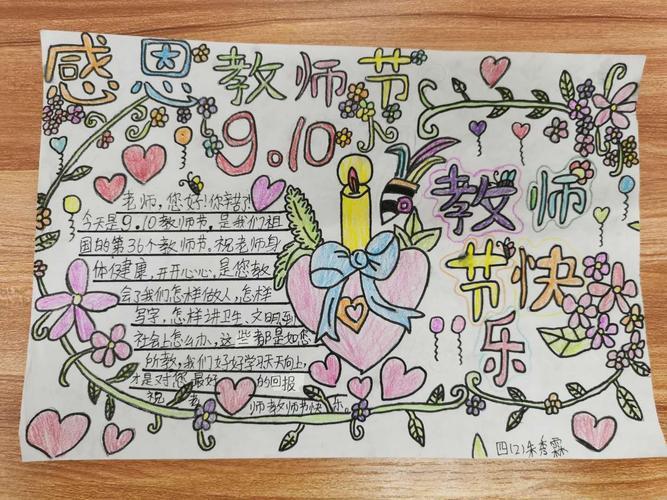 感恩教师节
9.10
老师,您好!你辛苦了!
今天是9.10教师节,是我们祖
国的第36个教师节,祝老师身
体健康,开开心心,是您教
会了我们怎样做人,怎样
写字,怎样讲卫生、文明到
社会上怎么办、这些都是如您
所教,我们好好学习天天向上,
才是对您最好的回报
祝老师教师节快乐。
教师
节快
乐
四(2)朱秀霖